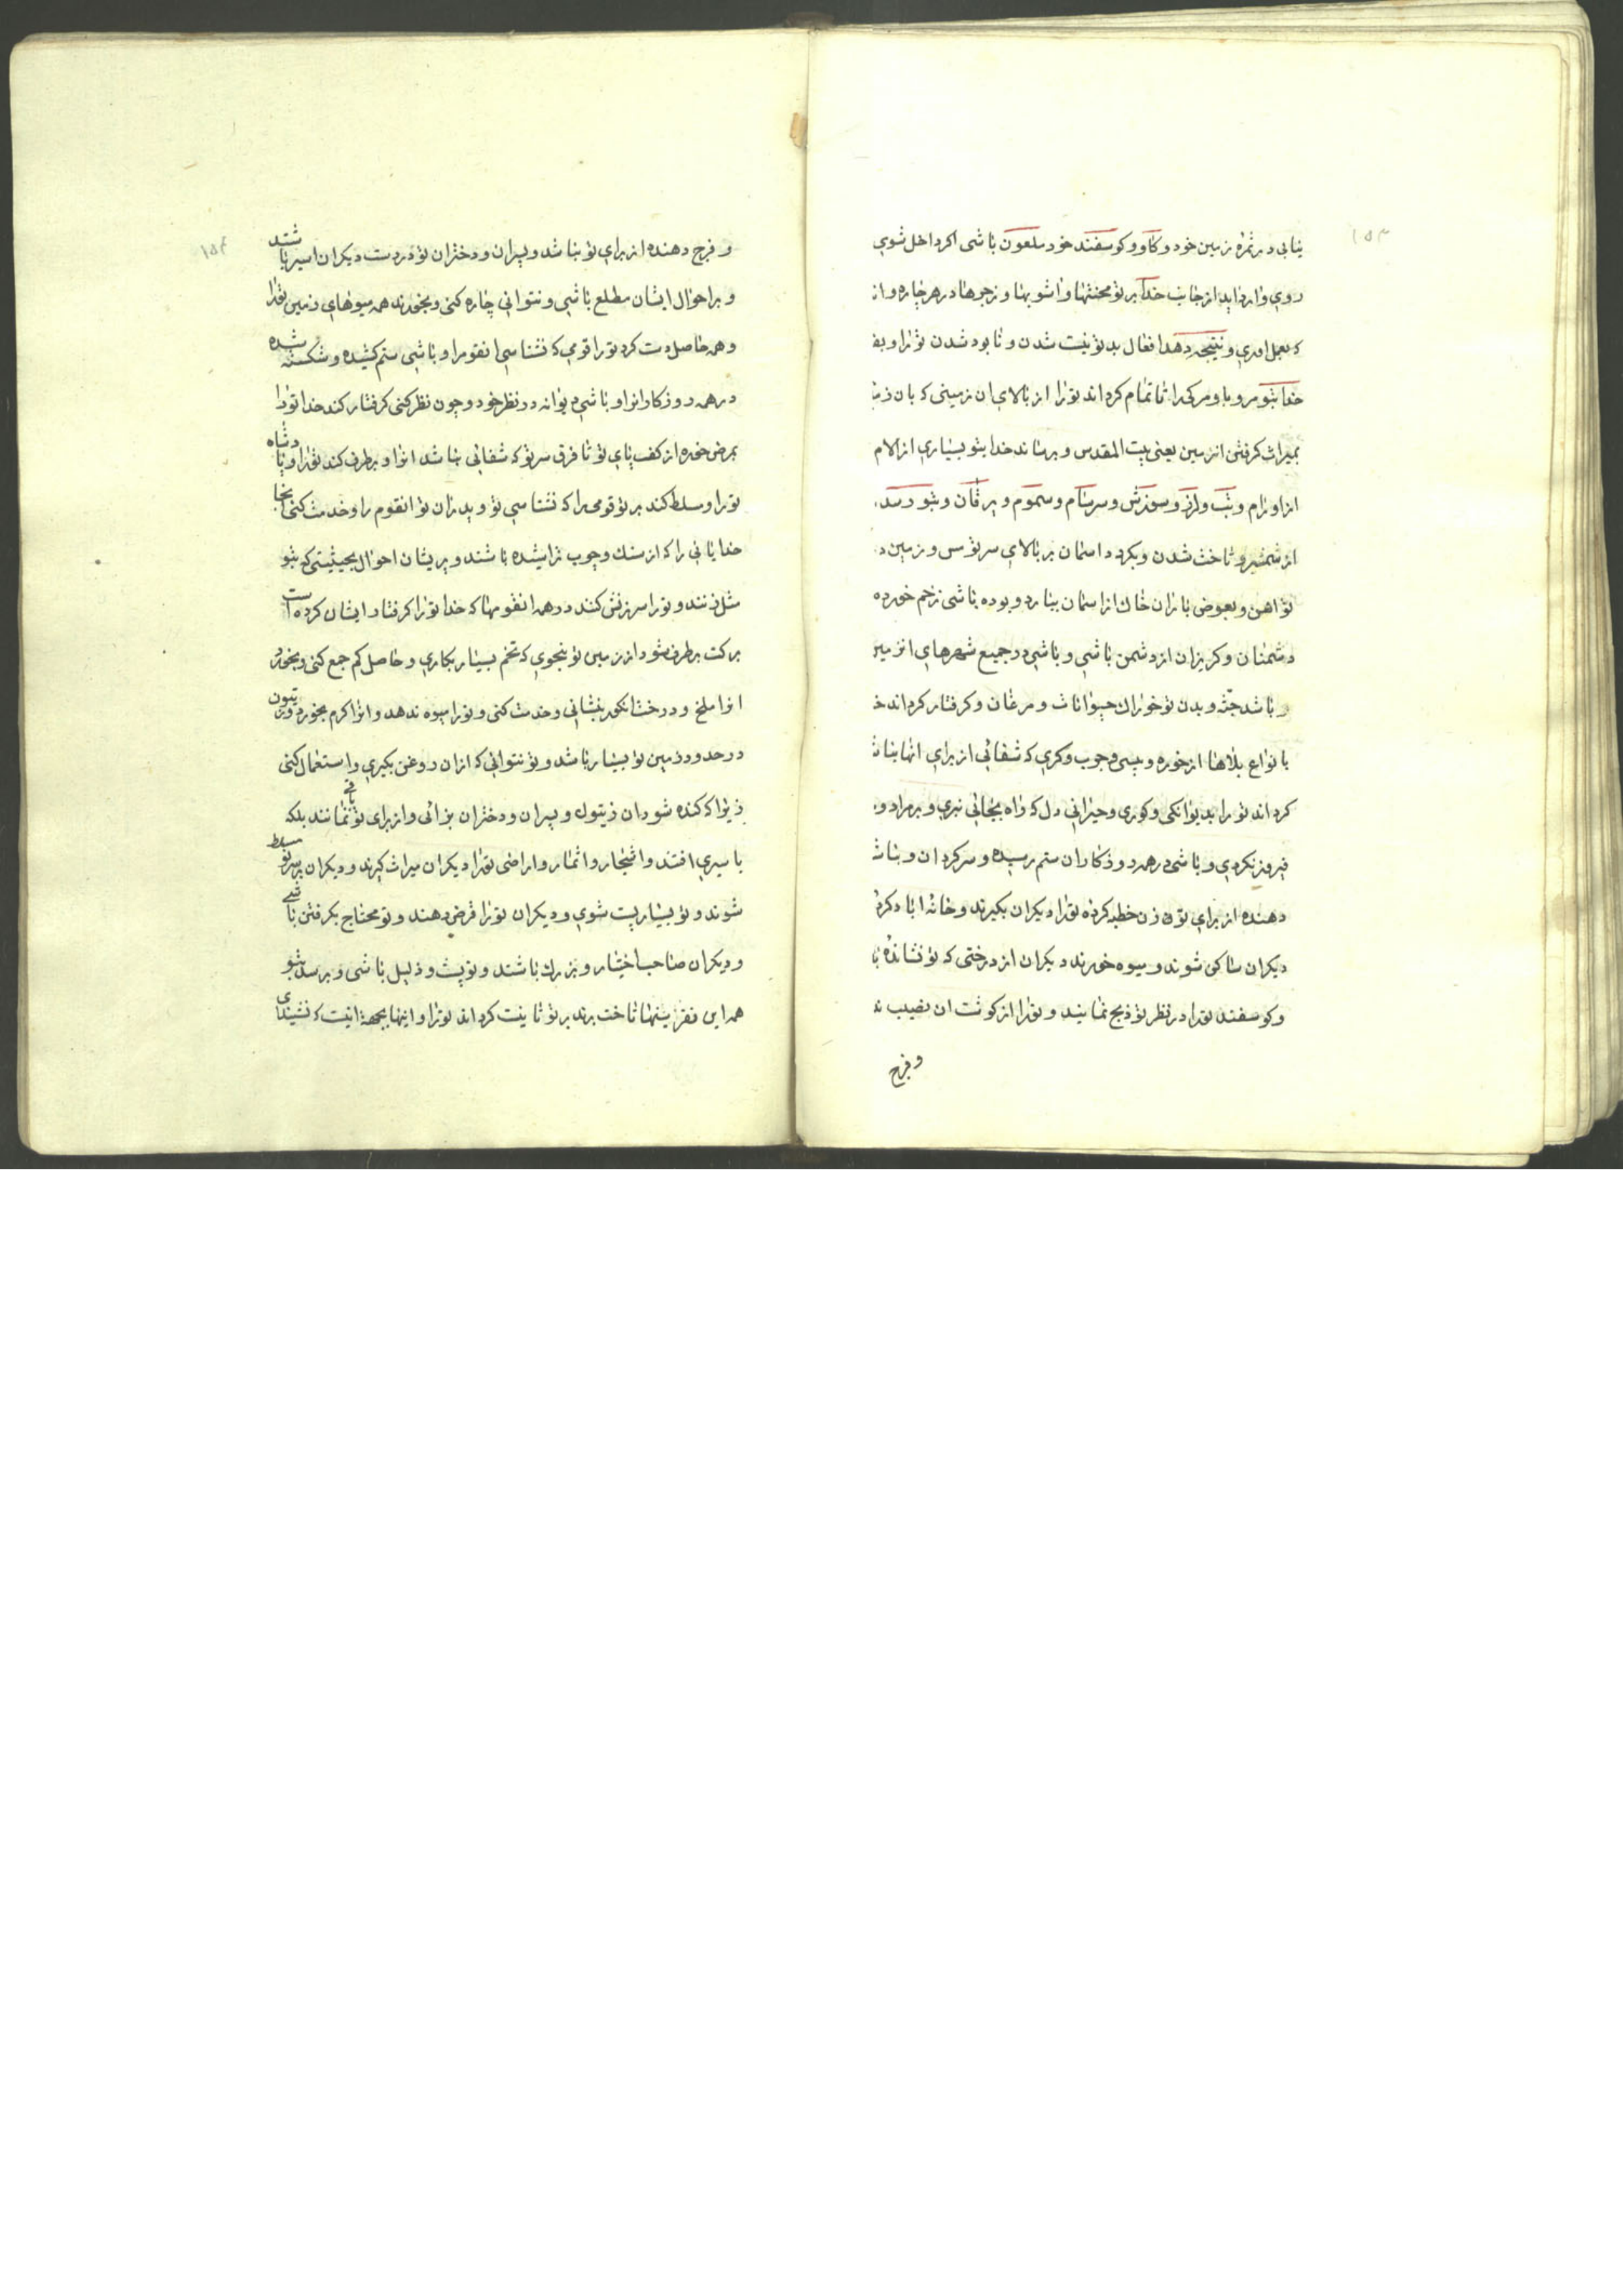 ۱۵۳
بنابی در ثمره زمین خود و کاو و کوسفند خود ملعون باشی اکر داخل شوی
روی وارد اید از جانب خدا بر تو محنتها واشوبها وزجرها در هر چاره وا
که بعمل اوری و نتیجه دهد افعال بد تو نیست شدن و نابود شدن تو را و بغ
خدا بتو مرو با و مرکی را تا تمام کرداند تو را از بالای ان زمینی که بان
بمیراث کرفتن انزمین یعنی بیت المقدس و برساند خدا بتو بسیاری از الام
از اورام و تب و لرز و سوزش و سرسام و سموم و یرقان و بتو رسد
از شمشیر و تاخت شدن و بکردد اسمان بر بالای سر تو مس و زمین د
تو اهن و بعوض باران خاک از اسمان ببارد و بوده باشی زخم خورده
دشمنان و کریزان از دشمن باشی و باشی در جمیع شهرهای انزمین
و باشد جثّه و بدن تو خوراک حیوانات و مرغان و کرفتار کرداند خ
بانواع بلاها از خوره و پیسی و جرب و کری که شفائی از برای انها نباش
کرداند تو را بدیوانکی و کوری و حیرانی دل که راه بجائی نبری و بر مراد و
فیروز نکردی و باشی در همه روزکاران ستم رسیده و سرکردان و نباش
دهنده از برای تو زن خطبه کرده تو را دیکران بکیرند و خانه اباد کرد
دیکران ساکن شوند و میوه خورند دیکران از درختی که تو نشانده
و کوسفند تو را در نظر تو ذبح نمایند و تو را از کوشت ان نصیب ند
و فرج
۱۵۴
و فرج دهنده از برای تو نباشد و پسران و دختران تو در دست دیکران اسیر باشند
و بر احوال ایشان مطلع باشی و نتوانی چاره کنی و بخورند همه میوهای زمین تو را
و همه حاصل دست کرد تو را قومی که نشناسی انقوم را و باشی ستم کشیده و شکسته شده
در همه روزکاران و باشی دیوانه در نظر خود و چون نظر کنی کرفتار کند خدا تو را
بمرض خوره از کف پای تو تا فرق سر تو که شفائی نباشد انرا و برطرف کند تو را و پادشاه
تو را و مسلط کند بر تو قومی را که نشناسی تو و پدران تو انقوم را و خدمت کنی انجا
خدایانی را که از سنک و چوب تراشیده باشند و پریشان احوال بحیثیتی که بتو
مثل زنند و تو را سرزنش کنند در همه انقومها که خدا تو را کرفتار ایشان کرده است
برکت برطرف شود از زمین تو بنحوی که تخم بسیار بکاری و حاصل کم جمع کنی و بخورد
انرا ملخ و درخت انکور بنشانی و خدمت کنی و تو را میوه ندهد و انرا کرم بخورد و زیتون
در حدود زمین تو بسیار باشد و تو نتوانی که از ان روغن بکیری و استعمال کنی
زیرا که کنده شود ان زیتون و پسران و دختران بزائی و از برای تو باقی نمانند بلکه
باسیری افتند و اشجار و اثمار و اراضی تو را دیکران میراث کیرند و دیکران بر تو مسلط
شوند و تو بسیار پست شوی و دیکران تو را قرض دهند و تو محتاج بکرفتن باشی
و دیکران صاحب اختیار و بزرک باشند و تو پست و ذلیل باشی و برسد بتو
همه این نفرینها تا تاخت برند بر تو تا نیست کرداند تو را و اینها بجهة اینست که نشنیدی